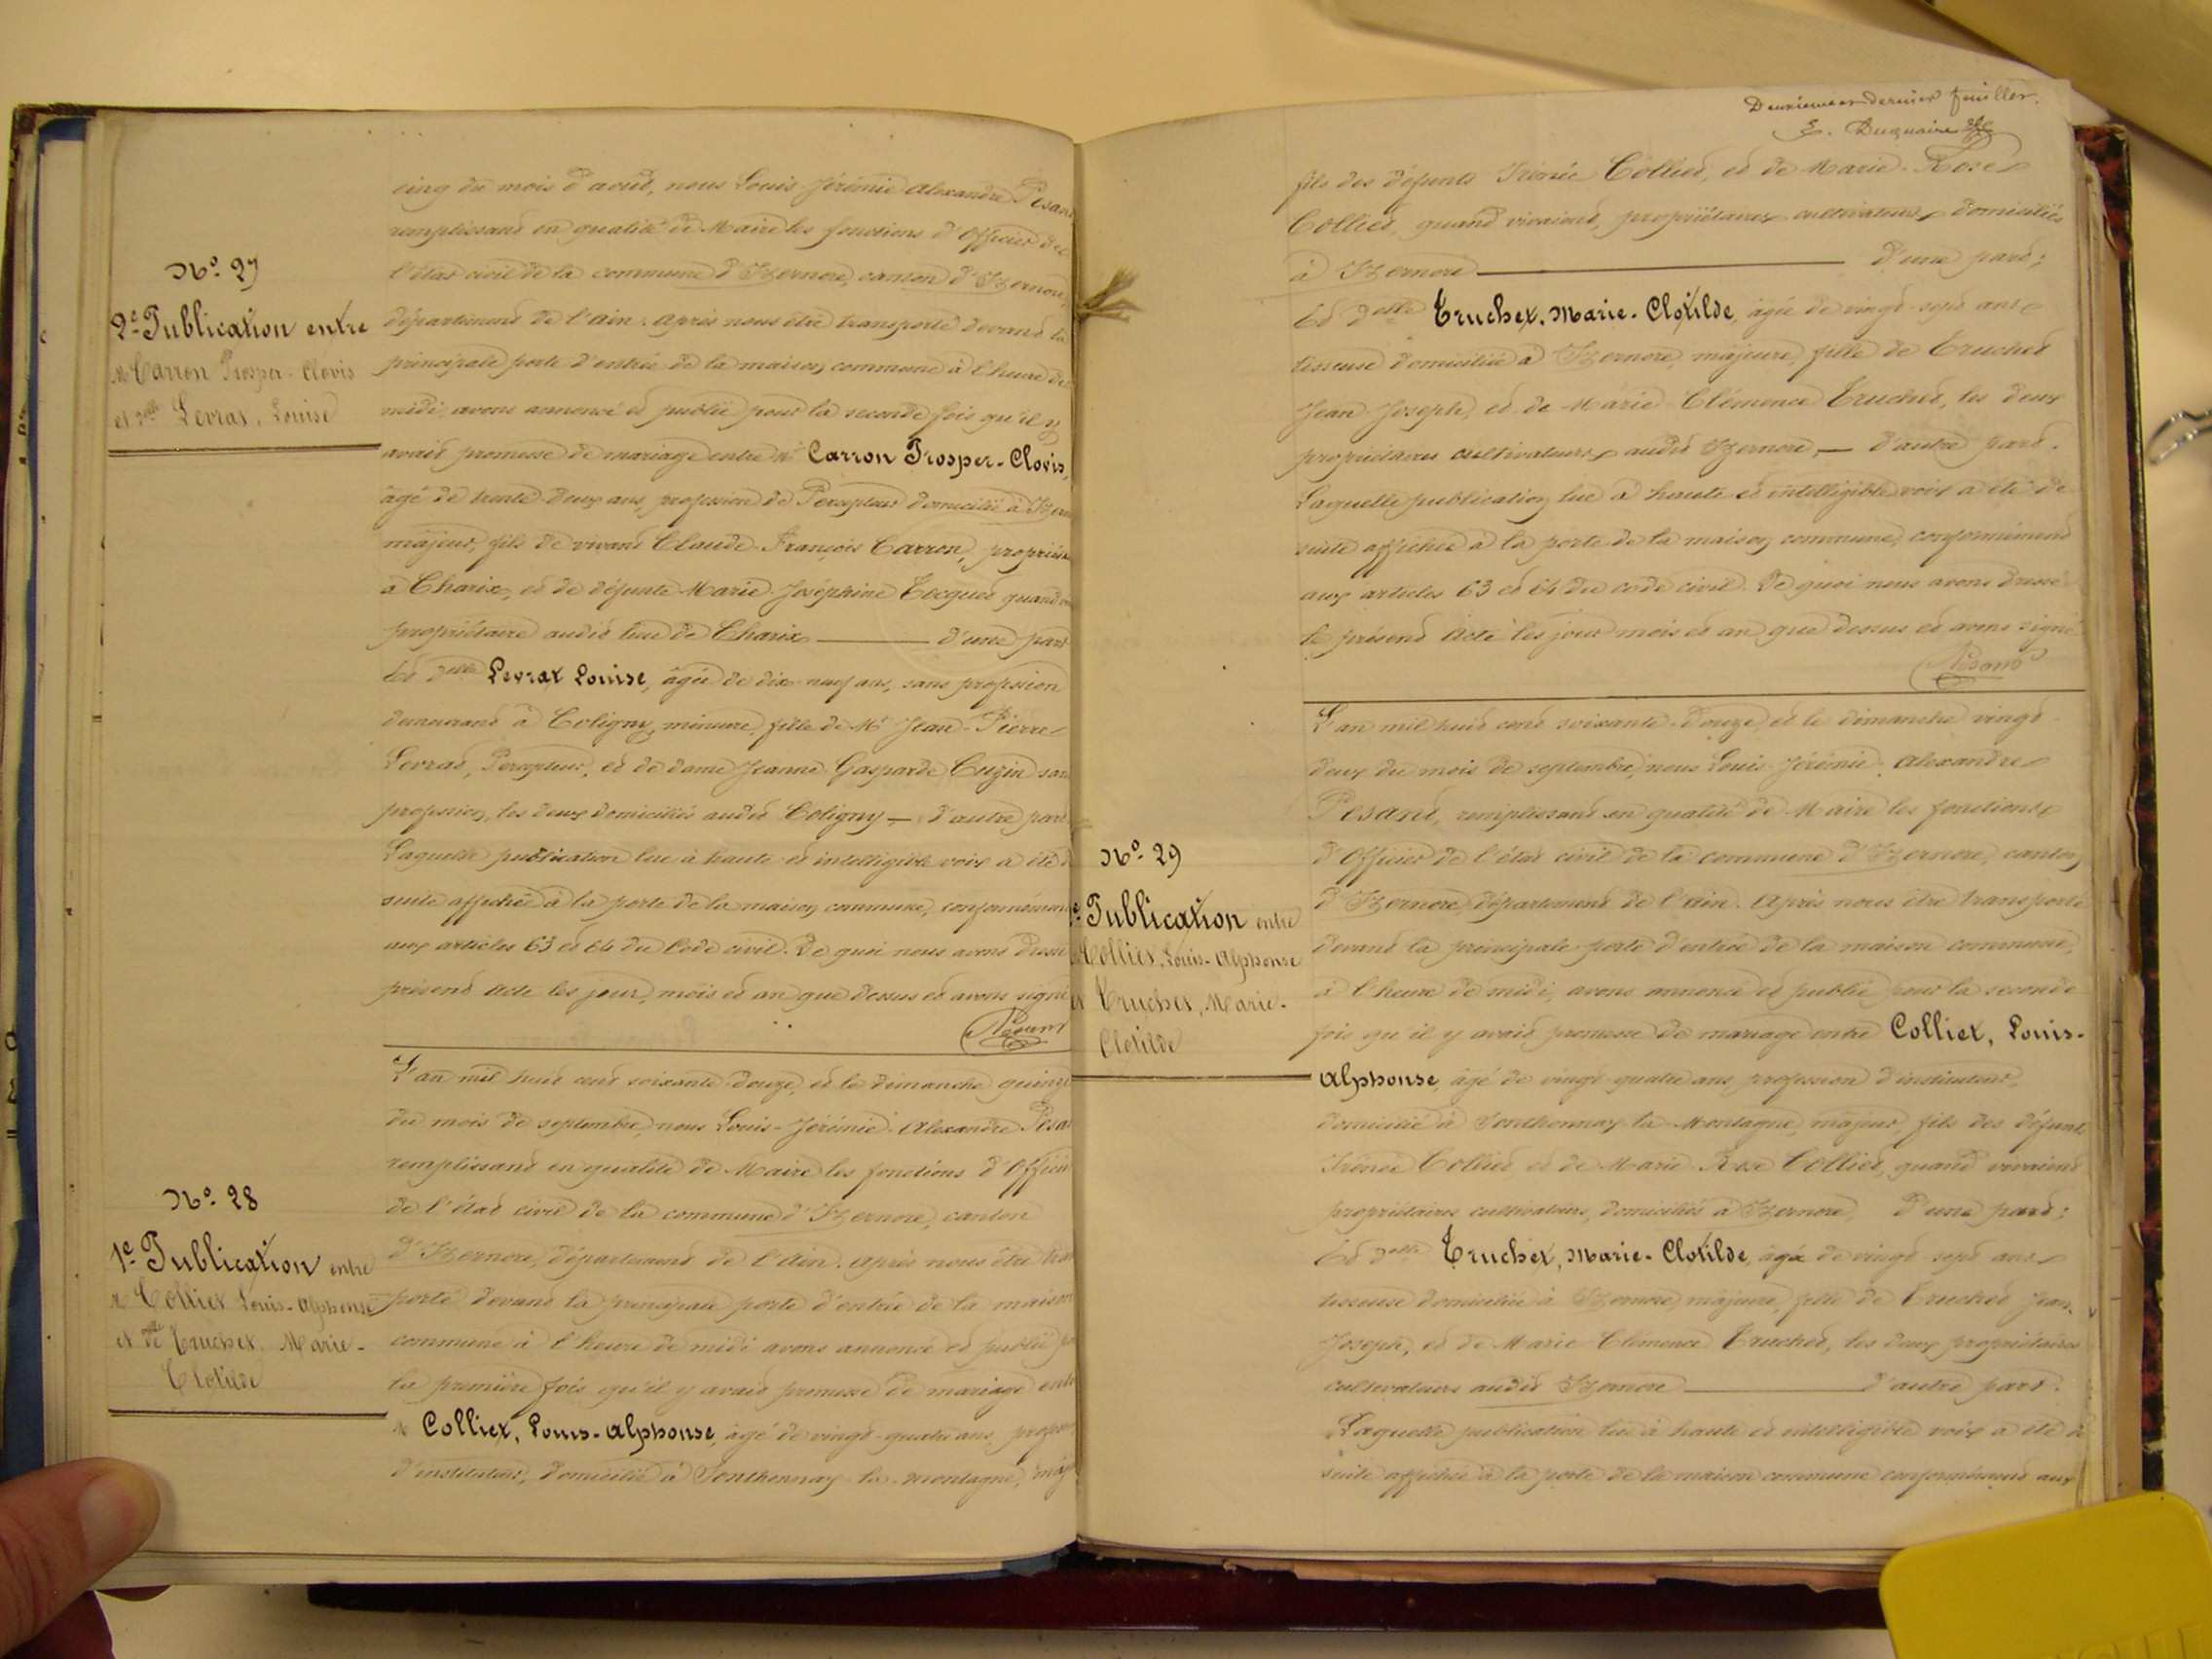 N.º 27
2.e Publication entre
M. Carron Prosper-Clovis
et Delle Levrat, Louise
cinq du mois d'août, nous Louis Jérémie Alexandre Pesant
remplissant en qualité de Maire les fonctions d'Officier de
l'état civil de la commune d'Izernore, canton d'Izernore,
département de l'Ain. Après nous être transporté devant la
principale porte d'entrée de la maison commune à l'heure de
midi, avons annoncé et publié pour la seconde fois qu'il y
avait promesse de mariage entre Mr Carron Prosper-Clovis,
âgé de trente-deux ans, profession de Percepteur domicilié à Izer
majeur, fils de vivant Claude-François Carron, propriét
à Charix, et de défunte Marie Joséphine quand
propriétaire audit lieu de Charix — d'une part
Et Delle Levrat Louise, âgée de dix-neuf ans, sans profession
demeurant à Coligny, mineure, fille de Mr Jean-Pierre
Levrat, Percepteur, et de dame Jeanne Gasparde Cuzin san
profession, les deux domiciliés audit Coligny — d'autre part
Laquelle publication lue à haute et intelligible voix a été d
suite affichée à la porte de la maison commune, conformément
aux articles 63 et 64 du Code civil. De quoi nous avons dressé
présent Acte les jour, mois et an que dessus et avons signé
Pesant
N.º 28
1.e Publication entre
M. Colliet Louis-Alphonse
et Delle Truchet, Marie-
Clotilde
L'an mil huit cent soixante-douze, et le dimanche quinze
du mois de septembre, nous Louis-Jérémie-Alexandre Pesa
remplissant en qualité de Maire les fonctions d'Officie
de l'état civil de la commune d'Izernore, canton
d'Izernore, département de l'Ain. Après nous être tra
porté devant la principale porte d'entrée de la maison
commune à l'heure de midi avons annoncé et publié po
la première fois qu'il y avait promesse de mariage ent
M. Colliet, Louis-Alphonse, âgé de vingt-quatre ans, profes
d'instituteur, domicilié à Sonthonnay-la-Montagne, maj
Deuxième et dernier feuillet.
E. Duquaire
fils des défunts Irénée Colliet, et de Marie-Rose
Colliet, quand vivaient, propriétaires cultivateurs domiciliés
à Izernore — d'une part;
Et Delle Truchet, Marie-Clotilde, âgée de vingt-sept ans
tisseuse domiciliée à Izernore, majeure, fille de Truchet
Jean-Joseph, et de Marie-Clémence Truchet, les deux
propriétaires cultivateurs audit Izernore, — d'autre part.
Laquelle publication lue à haute et intelligible voix a été de
suite affichée à la porte de la maison commune, conformément
aux articles 63 et 64 du code civil. De quoi nous avons dressé
le présent Acte les jour mois et an que dessus et avons signé
Pesant
N.º 29
2.e Publication entre
M. Colliet, Louis-Alphonse
et Truchet, Marie-
Clotilde
L'an mil huit cent soixante-douze, et le dimanche vingt-
deux du mois de septembre, nous Louis-Jérémie-Alexandre
Pesant, remplissant en qualité de Maire les fonctions
d'Officier de l'état civil de la commune d'Izernore, canton
d'Izernore, département de l'Ain. Après nous être transporté
devant la principale porte d'entrée de la maison commune,
à l'heure de midi, avons annoncé et publié pour la seconde
fois qu'il y avait promesse de mariage entre Colliet, Louis-
Alphonse, âgé de vingt-quatre ans, profession d'instituteur,
domicilié à Sonthonnay-la-Montagne, majeur, fils des défunts
Irénée Colliet et de Marie-Rose Colliet, quand vivaient
propriétaires cultivateurs, domiciliés à Izernore, d'une part;
Et Delle Truchet, Marie-Clotilde, âgée de vingt-sept ans
tisseuse domiciliée à Izernore, majeure, fille de Truchet Jean-
Joseph, et de Marie-Clémence Truchet, les deux propriétaires
cultivateurs audit Izernore — d'autre part.
Laquelle publication lue à haute et intelligible voix a été d
suite affichée à la porte de la maison commune conformément aux